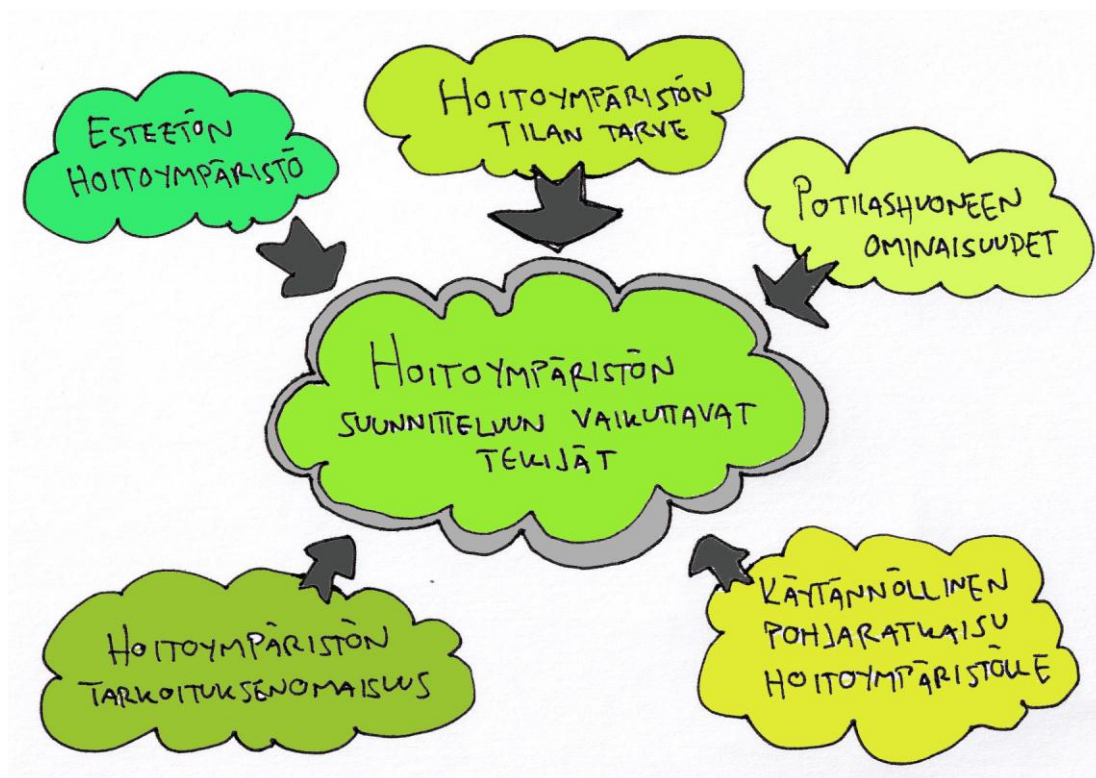 ESTEETÖN
HOITOYMPÄRISTÖ
HOITOYMPÄRISTÖN
TILAN TARVE
POTILASHUONEEN
OMINAISUUDET
HOITOYMPÄRISTÖN
SUUNNITTELUUN VAIKUTTAVAT
TEKIJÄT
HOITOYMPÄRISTÖN
TARKOITUKSENOMAISUUS
KÄYTÄNNÖLLINEN
POHJARATKAISU
HOITOYMPÄRISTÖLLE